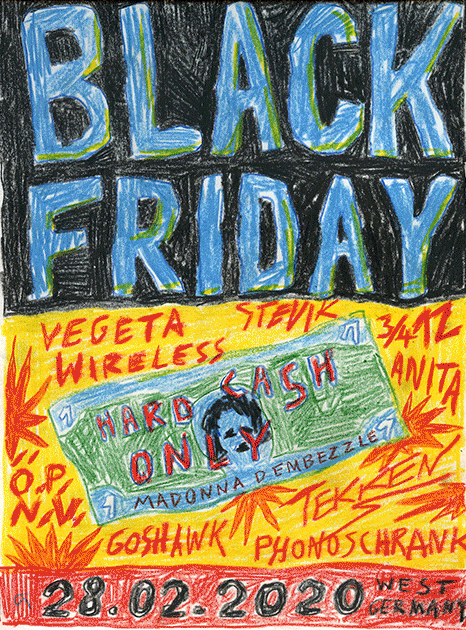 BLACK
FRIDAY
VEGETA
WIRELESS
STEVIK
3/4 12
ANITA
HARD CASH
ONLY
MADONNA D EMBEZZLE
Ö.P.
N.V.
TEKKEN
GOSHAWK
PHONOSCHRANK
28.02.2020
WEST
GERMANY